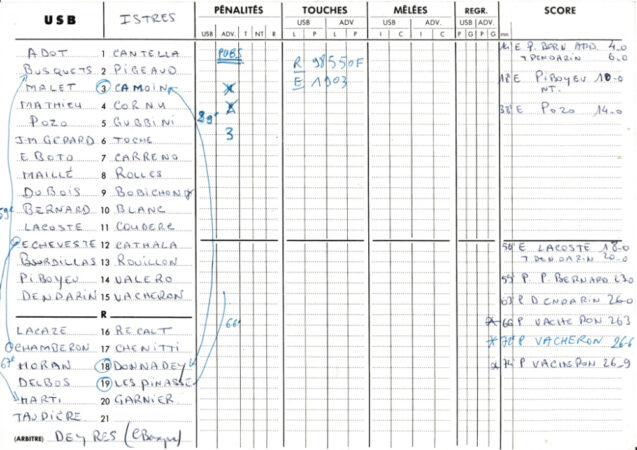 USB ISTRES PÉNALITÉS TOUCHES MÊLÉES REGR. SCORE
USB ADV. T NT R USB ADV USB ADV USB ADV
L P L P I C I C P G P G mn
ADOT 1 CANTELLA PUBS 14' E P. BERN ADD. 4.0
BUSQUETS 2 PIGEAUD R 98550F T DENDARIN 6.0
MALET 3 CAMOIN X E 1903 18' E PIBOYEU 10-0
NT.
MATHIEU 4 CORNU X
POZO 5 GUBBINI 89' 38' E POZO 14-0
J.M GEPARD 6 TOCHE 3
E BOTO 7 CARRENO
MAILLÉ 8 ROLLES
DUBOIS 9 BOBICHON
BERNARD 10 BLANC
LACOSTE 11 COUDERC
ECHEVESTE 12 CATHALA 50' E LACOSTE 18-0
T DENDARIN 20-0
BOURDILLAS 13 ROUILLON
PIBOYEU 14 VALERO 55' P P. BERNARD 23.0
DENDARIN 15 VACHERON 63' P DENDARIN 26-0
R
LACAZE 16 RECALT 66' 66' P VACHERON 26 3
CHAMBERON 17 CHENITTI P VACHERON 26-6
MORAN 18 DONNADEY 67' P VACHERON 26-9
DELBOS 19 LESPINASSE
MARTI 20 GARNIER
TAUDIÈRE 21
(ARBITRE) DEYRES